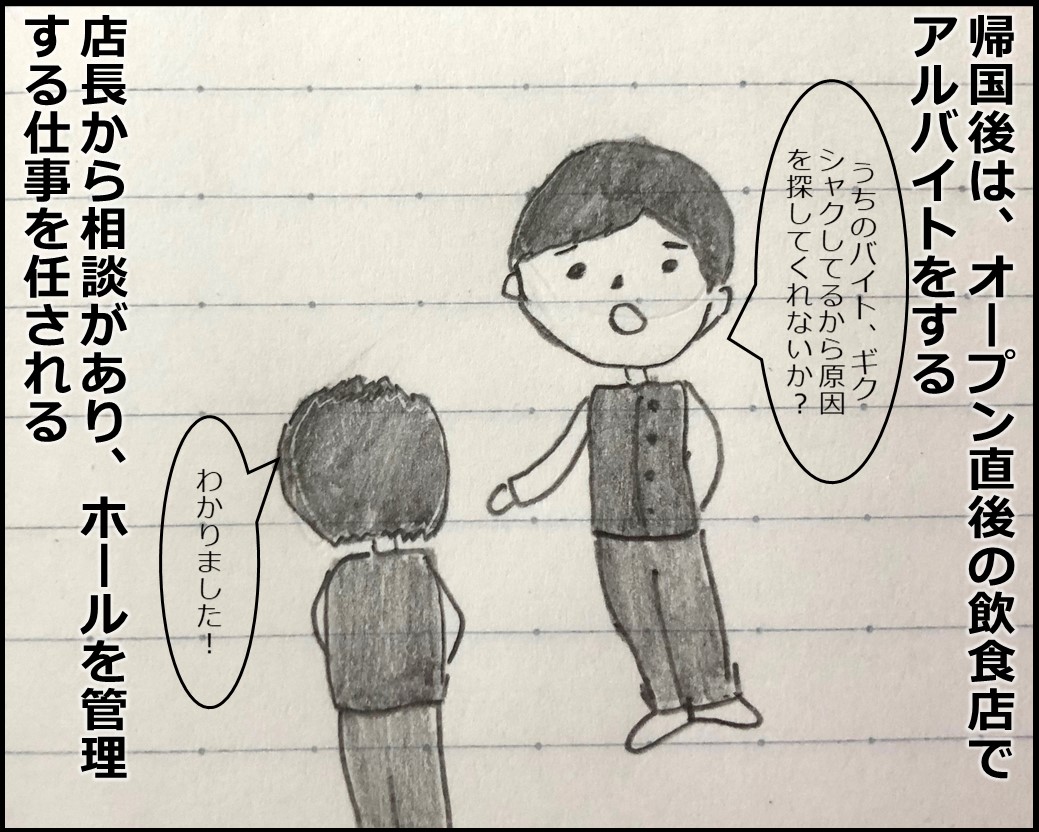 帰国後は、オープン直後の飲食店で
アルバイトをする
うちのバイト、ギク
シャクしてるから原因
を探してくれないか？
わかりました！
店長から相談があり、ホールを管理
する仕事を任される